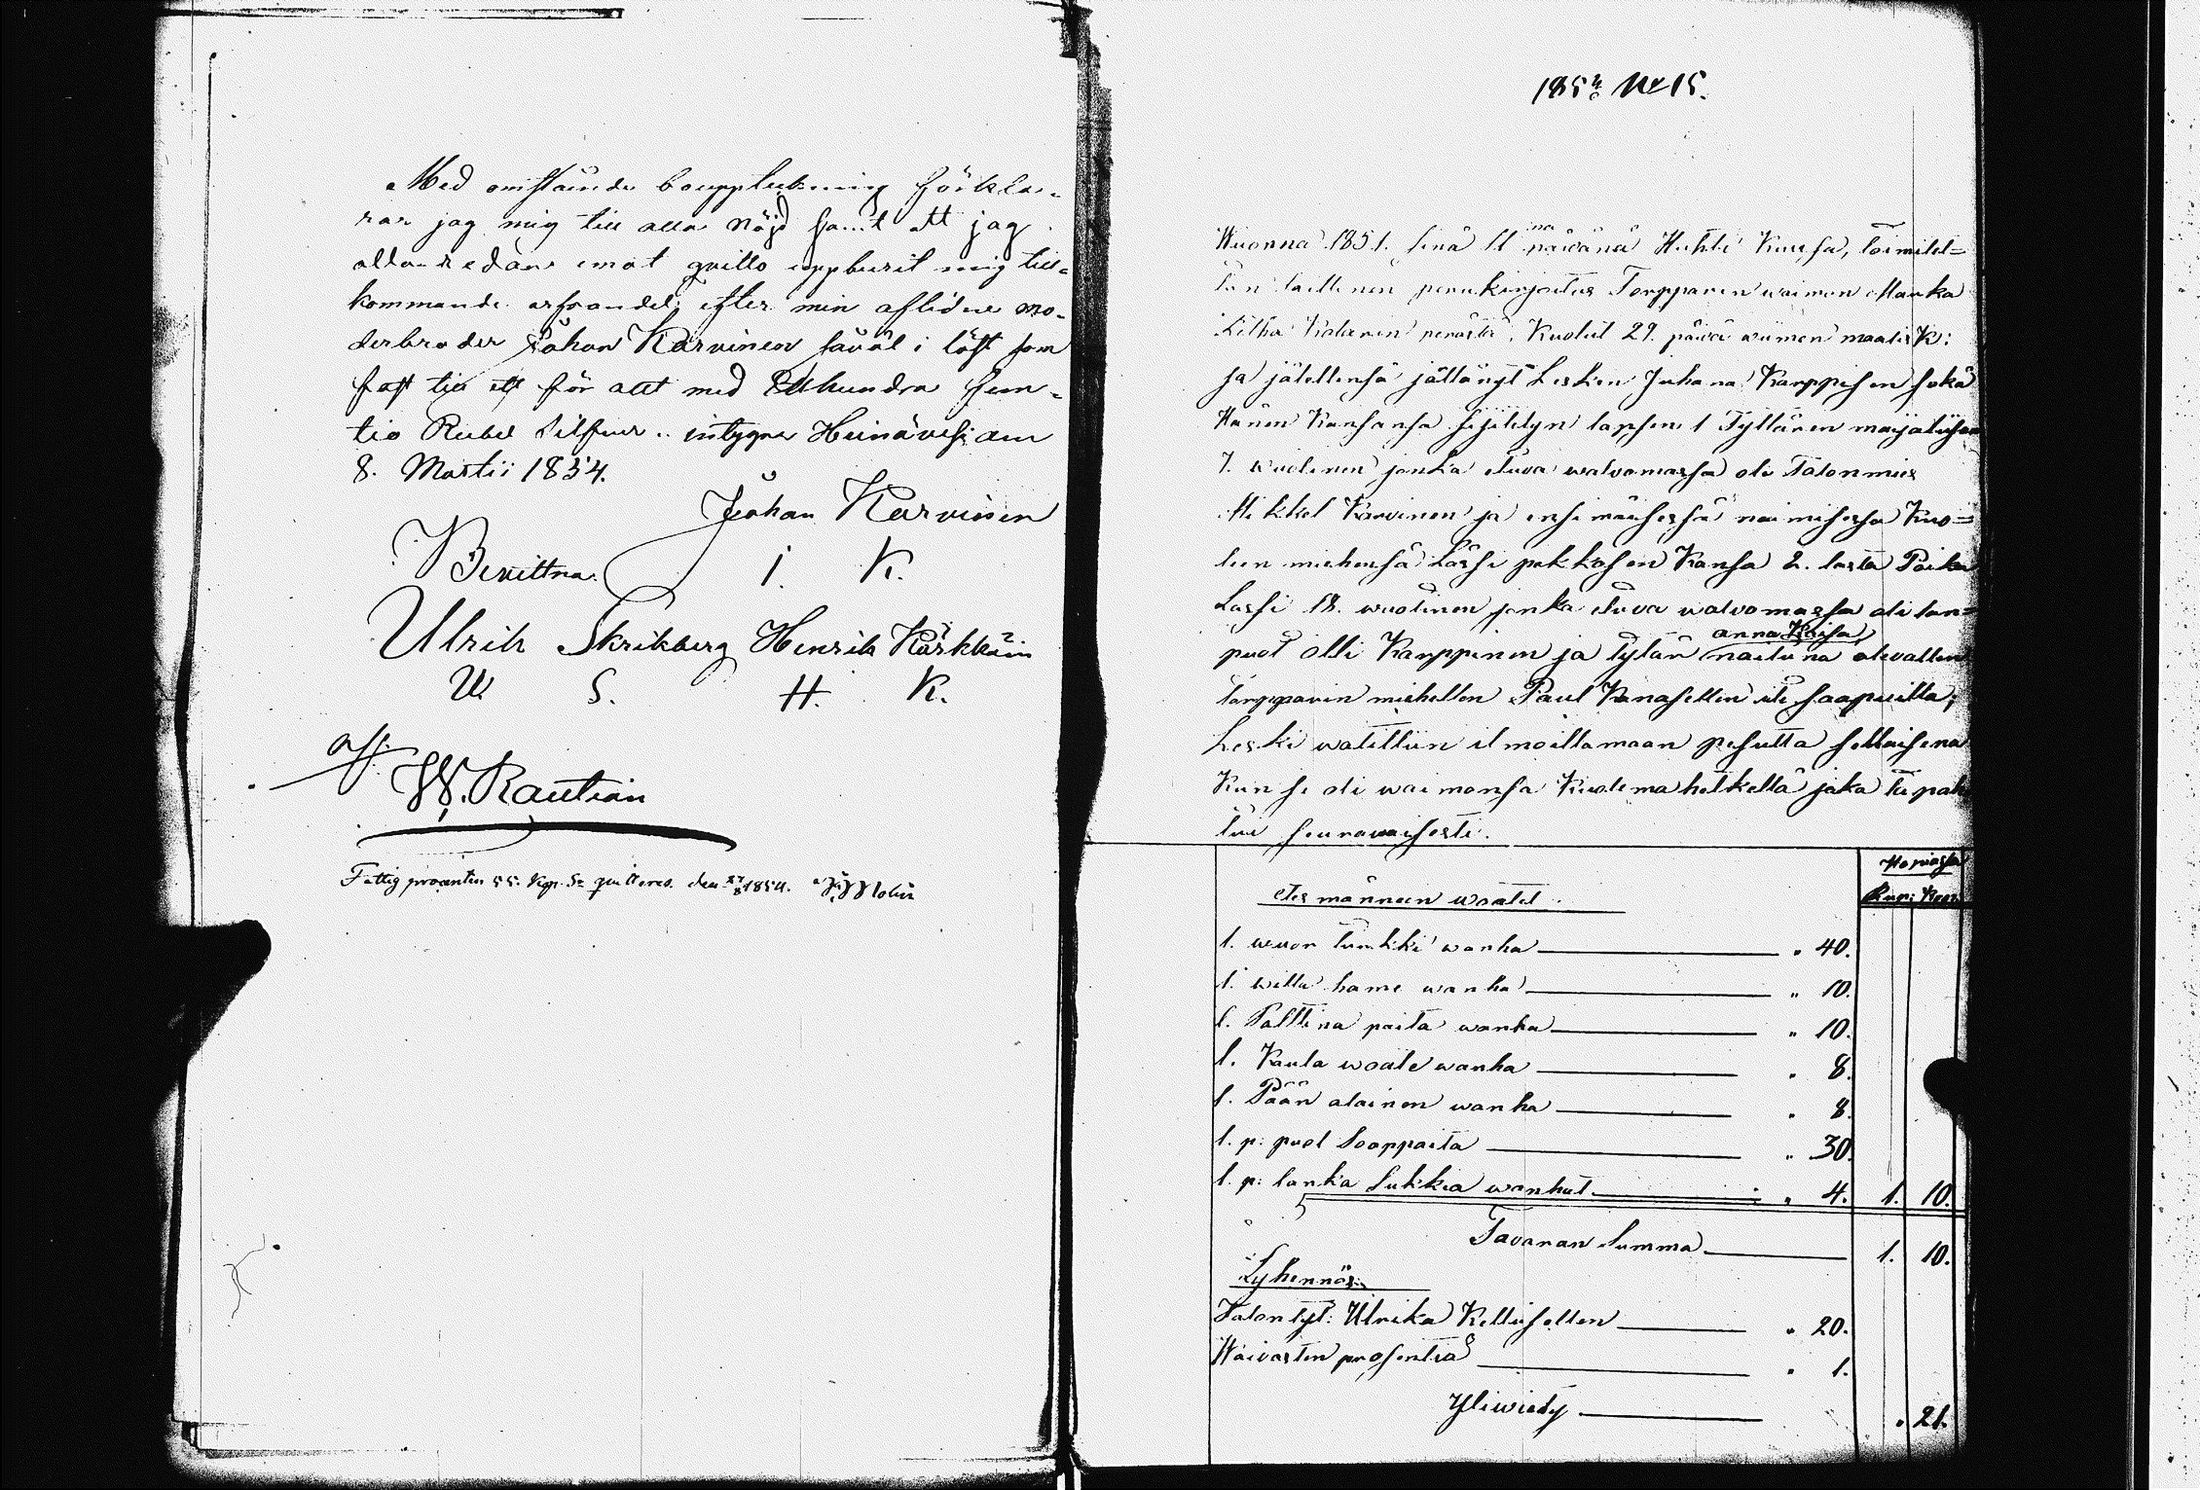 Med omstående bouppteckning förkla-
rar jag mig till alla nöjd samt att jag
allaredan emot qvitto uppburit mig till-
kommande arfvandel efter min aflidne mo-
derbroder Johan Karvinen såväl i löst som
fast till ett för allt med Etthundra fem-
tio Rubel Silfver.. intygar Heinävesi am
8. Martii 1854.
Johan Karvinen
Bevittna. I. K.
Ulrik Skrikberg Henrik Kärkkäin
U. S. H. K.
W. Rautiain
Fattig procenten 55. Kop. Sr qvitteras. den 1854.
185 No 15.
Wuonna 1851. sinä 11 na päivänä Huhti Kuussa, toimitet-
tiin laillinen perukirjoitus Torpparin waimon
perästä. Kuollut 29. päivä wiimen maalis K:
ja jälellensä jättänyt Lesken Juhana Karppisen sekä
Hänen Kanssansa sijitetyn lapsen 1 Tyttären
7. wuotinen jonka etuva walvomassa oli Talonmies
Mikkel Karvinen ja ensimäisessä naimisessa Kuo=
leen miehensä Lassi pakkasen Kansa 2. lasta Poika
Lassi 18. wuotinen jonka etuva walvomassa oli lan=
anna Kaisa
puot olli Karppinen ja tytär naituna olevallen
torpparin miehellen Paul Kanasellen itse saapuilla;
Leski watittiin ilmoittamaan pesutta sellaisena
Kun se oli waimonsa Kuolema hetkellä joka tapah
tui seuraavaisesti.
Hopiassa
Rup: Kop:
etes männeen waatet.
1. wuor turkki wanha " 40.
1. willa hame wanha " 10.
1. Palttina paita wanha " 10.
1. Kaula waate wanha " 8.
1. Pään alainen wanha " 8.
1. p: puol Saappaita " 30.
1. p: lanka Sukkia wanhat " 4. 1. 10.
Tavaran Summa 1. 10.
Lyhennös:
Talon tyt: Ulrika Kettusellen " 20.
Waivasten prosentiä " 1.
Yliwiedy " 21.